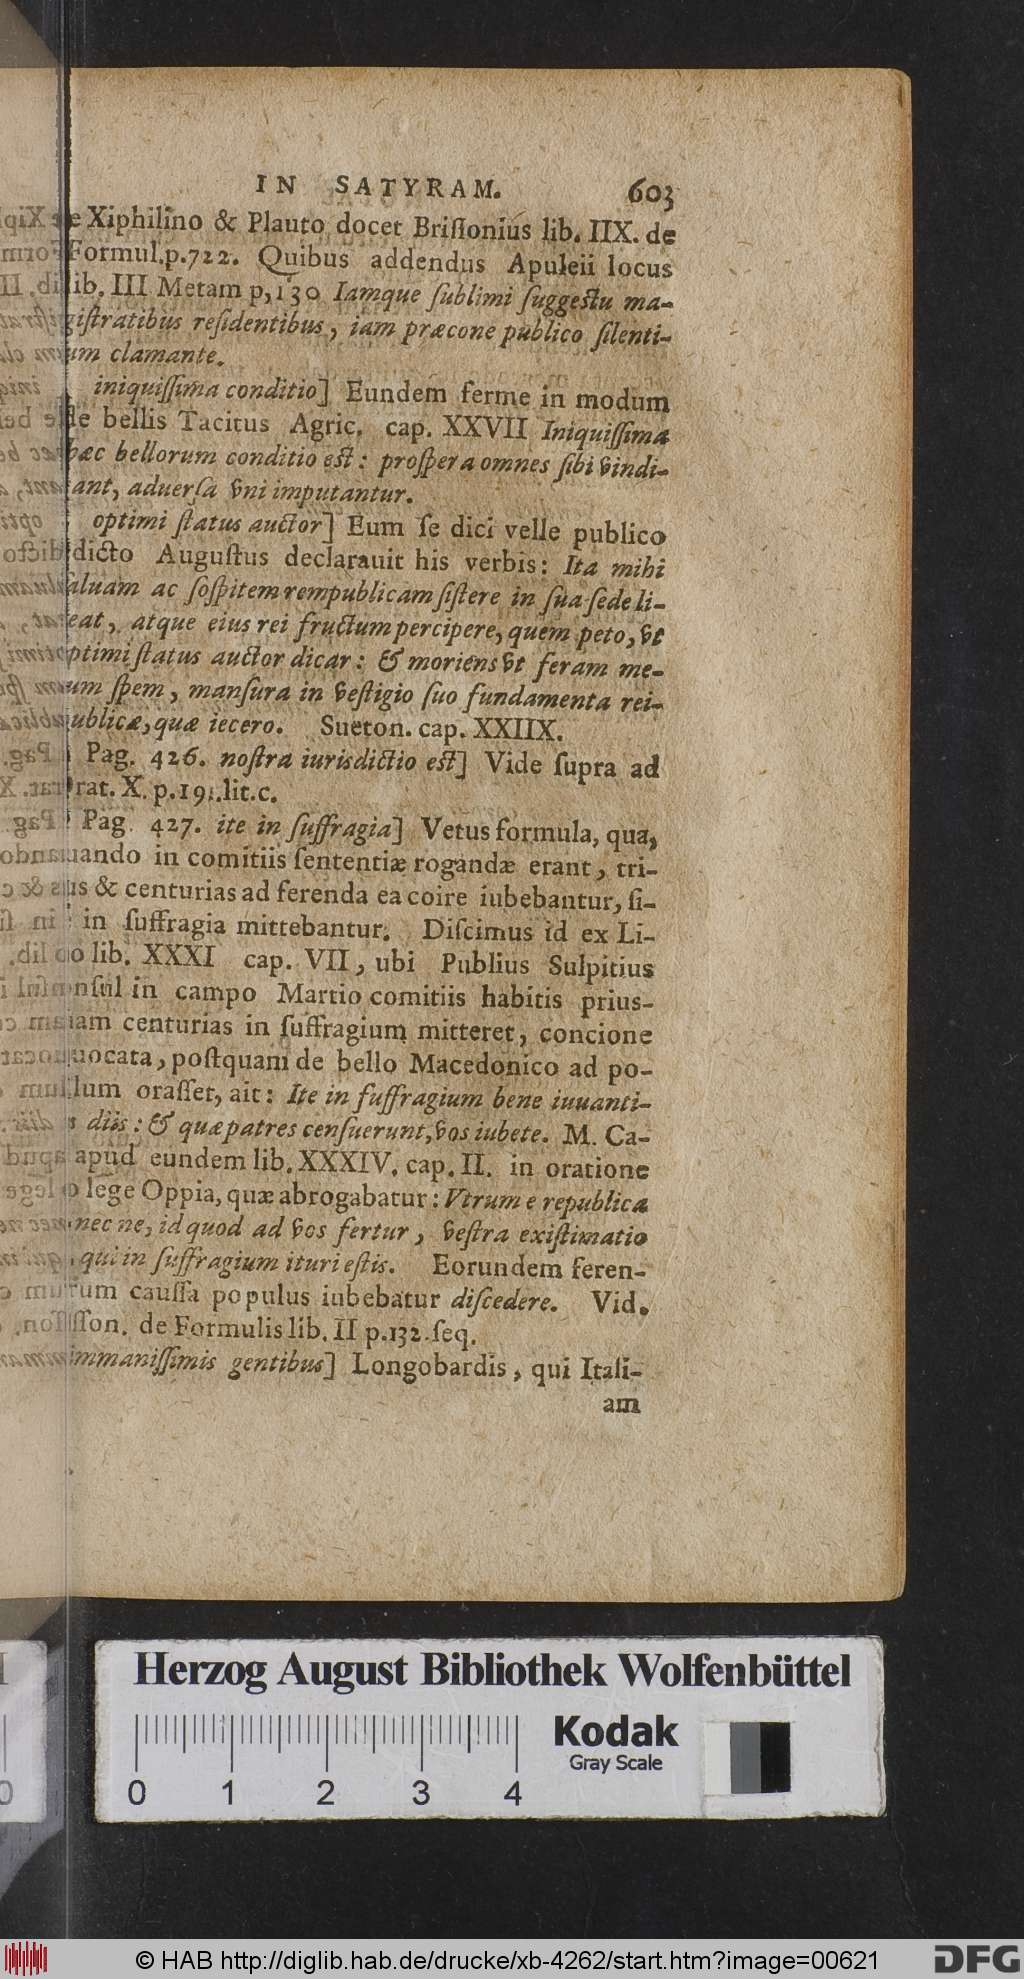 IN SATYRAM. 603
e Xiphilino & Plauto docet Briſſonius lib. IIX. de
Formul.p.722. Quibus addendus Apuleii locus
lib. III Metam p,130 Iamque ſublimi ſuggeſtu ma-
giſtratibus reſidentibus, iam præcone publico ſilenti-
um clamante.
iniquiſſima conditio] Eundem ferme in modum
de bellis Tacitus Agric. cap. XXVII Iniquiſſima
hæc bellorum conditio eſt: proſpera omnes ſibi vindi-
cant, aduerſa vni imputantur.
optimi ſtatus auctor] Eum ſe dici velle publico
edicto Auguſtus declarauit his verbis: Ita mihi
ſaluam ac ſoſpitem rempublicam ſiſtere in ſua ſede li-
ceat, atque eius rei fructum percipere, quem peto, vt
optimi ſtatus auctor dicar: & moriens vt feram me-
cum ſpem, manſura in veſtigio ſuo fundamenta rei-
publicæ, quæ iecero. Sueton. cap. XXIIX.
Pag. 426. noſtra iurisdictio eſt] Vide ſupra ad
rat. X. p.191.lit.c.
Pag. 427. ite in ſuffragia] Vetus formula, qua,
quando in comitiis ſententiæ rogandæ erant, tri-
bus & centurias ad ferenda ea coire iubebantur, ſi-
in ſuffragia mittebantur. Diſcimus id ex Li-
o lib. XXXI cap. VII, ubi Publius Sulpitius
nſul in campo Martio comitiis habitis prius-
am centurias in ſuffragium mitteret, concione
uocata, poſtquam de bello Macedonico ad po-
lum oraſſet, ait: Ite in ſuffragium bene iuuanti-
s diis: & quæ patres cenſuerunt, vos iubete. M. Ca-
apud eundem lib. XXXIV. cap. II. in oratione
o lege Oppia, quæ abrogabatur: Vtrum e republica
nec ne, id quod ad vos fertur, veſtra exiſtimatio
qui in ſuffragium ituri eſtis. Eorundem feren-
rum cauſſa populus iubebatur diſcedere. Vid.
ſſon. de Formulis lib. II p.132.ſeq.
immaniſſimis gentibus] Longobardis, qui Itali-
am
Herzog August Bibliothek Wolfenbüttel
Kodak
Gray Scale
0 1 2 3 4
© HAB http://diglib.hab.de/drucke/xb-4262/start.htm?image=00621
DFG